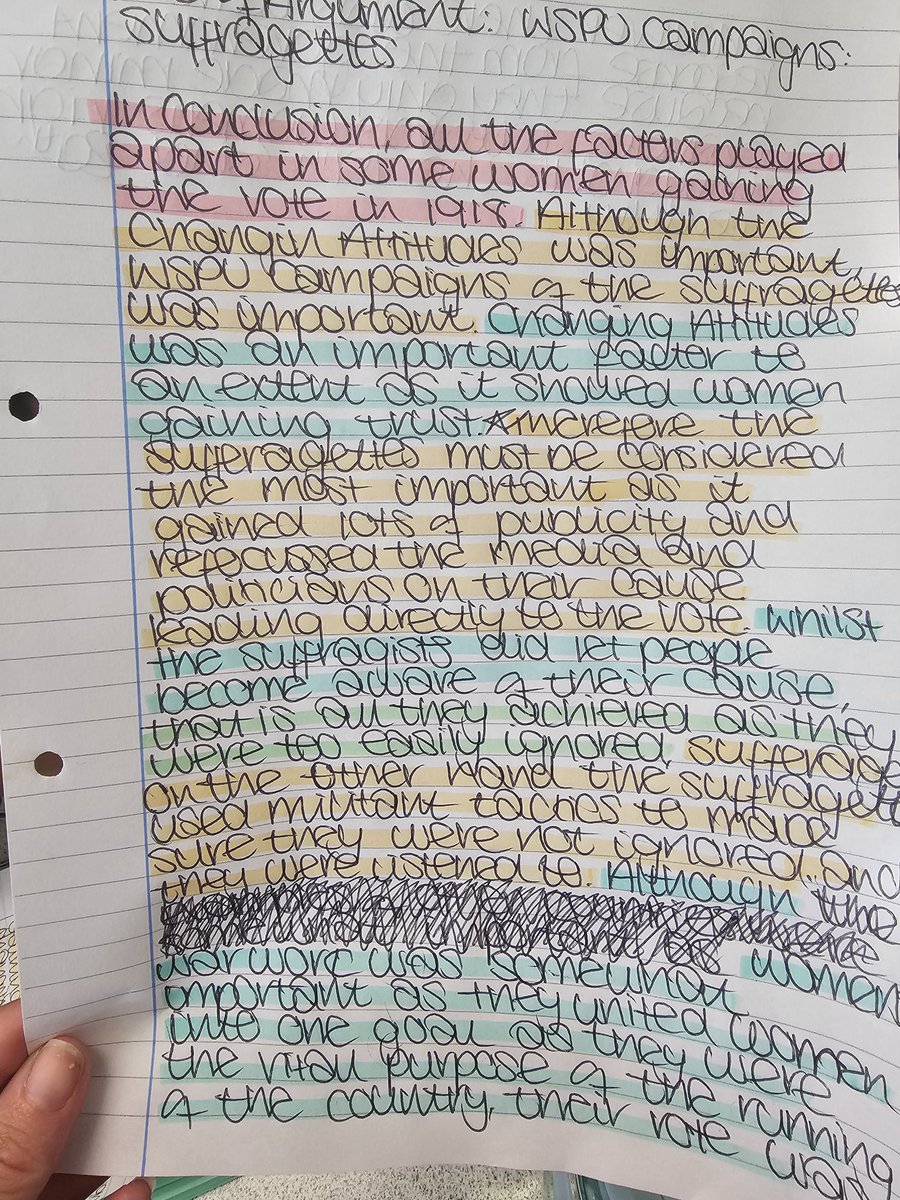 Argument: WSPU Campaigns:
Suffragettes
In Conclusion, all the factors played
apart in some women gaining
the vote in 1918. Although the
Changin Attitudes was important,
WSPU Campaigns of the suffragettes
was important. Changing Attitudes
was an important factor to
an extent as it showed women
gaining trust. Therefore the
sufferagettes must be considered
the most important as it
gained lots of publicity and
refocussed the media and
politicians on their cause
leading directly to the vote. Whilst
the suffragists did let people
become aware of their cause,
that is all they achieved as they
were too easily ignored, sufferage
on the other hand the suffragett
used militant tactics to make
sure they were not ignored and
they were listened to. Although the
women
war work was somewhat
important as they united women
onto one goal as they were
the vital purpose of the running
of the country, their role was